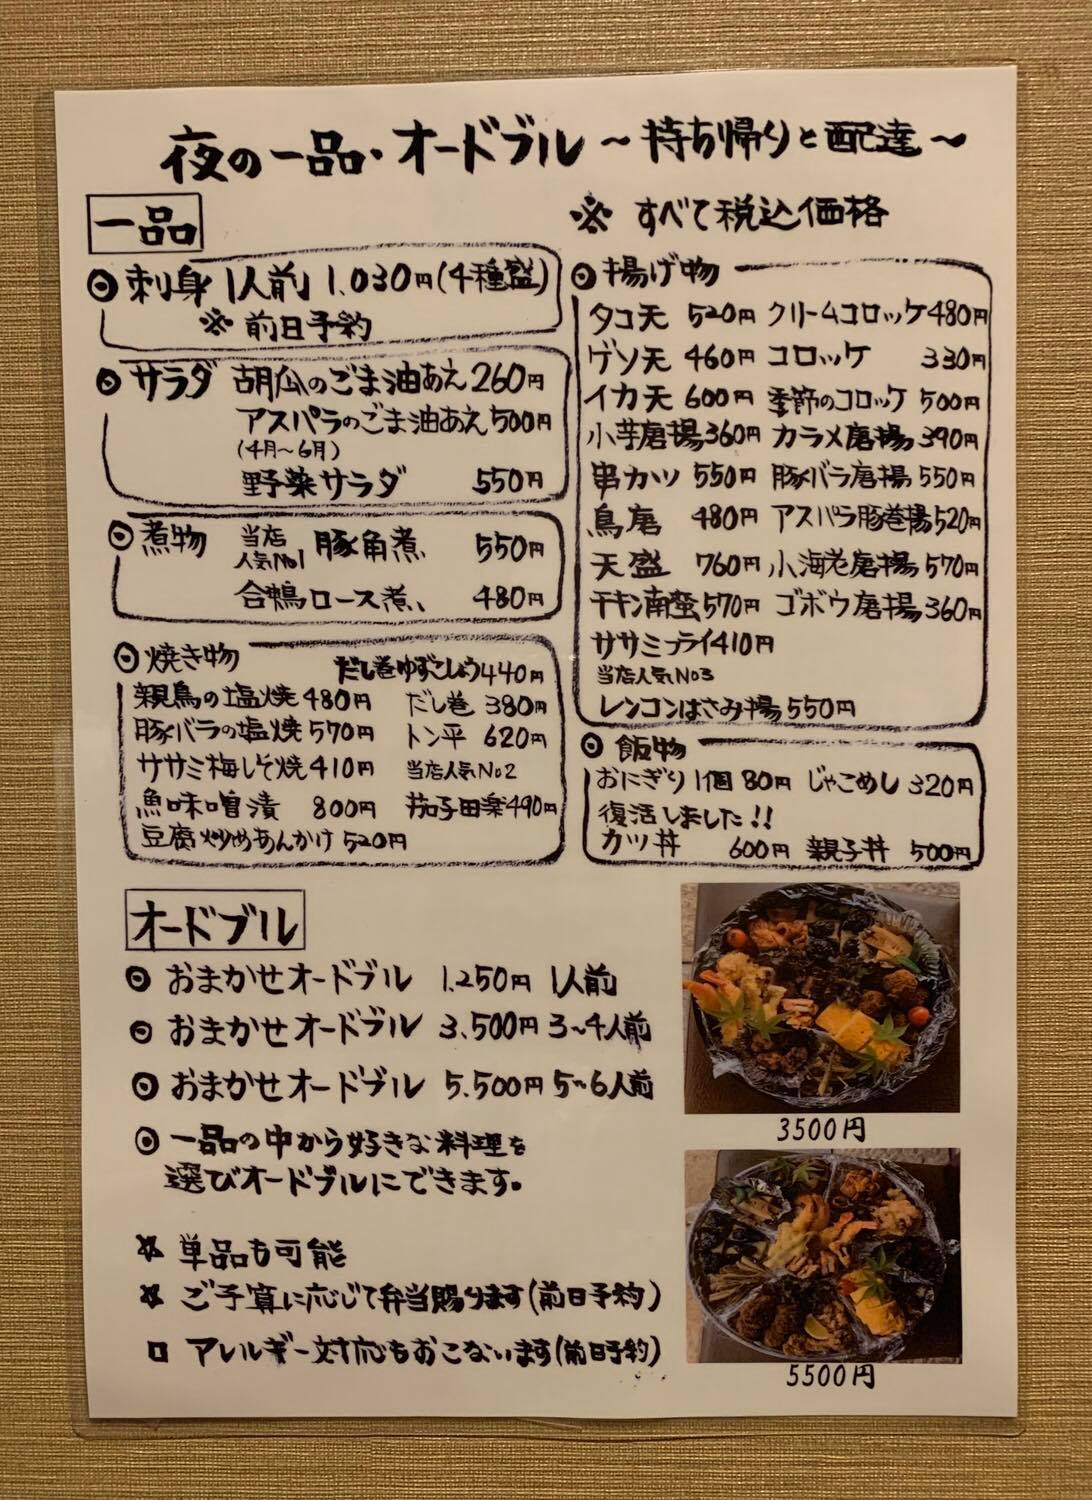 夜の一品・オードブル ～持ち帰りと配達～
一品
※ すべて税込価格
◎ 刺身 1人前 1,030円(4種盛)
※ 前日予約
◎ サラダ 胡瓜のごま油あえ 260円
アスパラのごま油あえ 500円
(4月～6月)
野菜サラダ 550円
◎ 煮物 当店人気No1 豚角煮 550円
合鴨ロース煮 480円
◎ 焼き物 だし巻ゆずこしょう 440円
親鳥の塩焼 480円 だし巻 380円
豚バラの塩焼 570円 トン平 620円
ササミ梅しそ焼 410円 当店人気No2
魚味噌漬 800円 茄子田楽 490円
豆腐炒めあんかけ 520円
◎ 揚げ物
タコ天 520円 クリームコロッケ 480円
ゲソ天 460円 コロッケ 330円
イカ天 600円 季節のコロッケ 500円
小芋唐揚 360円 カラメ唐揚 390円
串カツ 550円 豚バラ唐揚 550円
鳥唐 480円 アスパラ豚巻揚 520円
天盛 760円 小海老唐揚 570円
チキン南蛮 570円 ゴボウ唐揚 360円
ササミフライ 410円
当店人気No3
レンコンはさみ揚 550円
◎ 飯物
おにぎり 1個 80円 じゃこめし 320円
復活しました!!
カツ丼 600円 親子丼 500円
オードブル
◎ おまかせオードブル 1,250円 1人前
◎ おまかせオードブル 3,500円 3~4人前
◎ おまかせオードブル 5,500円 5~6人前
◎ 一品の中から好きな料理を
選びオードブルにできます。
☆ 単品も可能
☆ ご予算に応じて弁当賜ります(前日予約)
□ アレルギー対応もおこないます(前日予約)
3500円
5500円